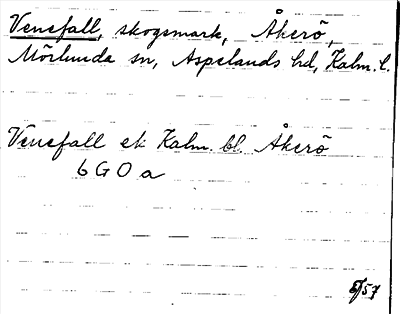 Venefall, skogsmark, Åkerö,
Mörlunda sn, Aspelands hd, Kalm. l.
Venefall ek Kalm. bl. Åkerö
6 G O a
57